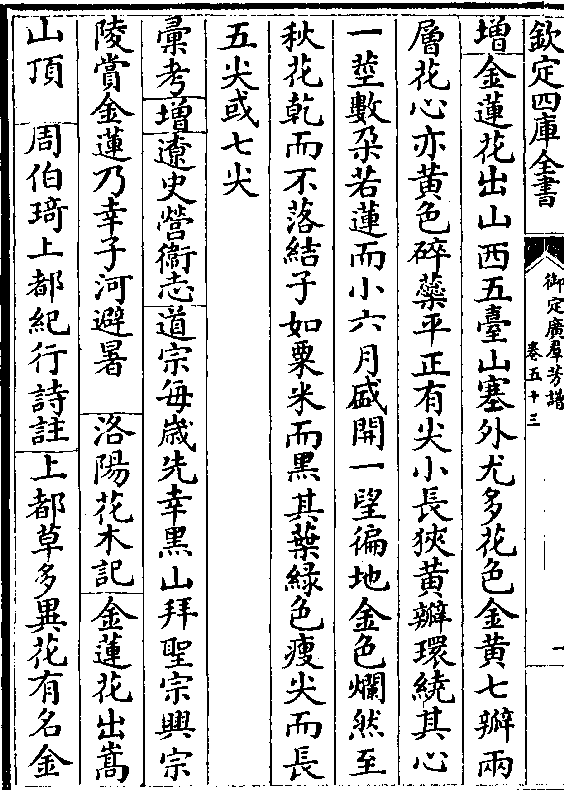 欽定四庫全書
御定廣羣芳譜
卷五十三
一
增金蓮花出山西五臺山塞外尤多花色金黃七瓣兩
層花心亦黃色碎蘂平正有尖小長狹黃瓣環繞其心
一莖數朶若蓮而小六月盛開一望徧地金色爛然至
秋花乾而不落結子如粟米而黑其葉緑色瘦尖而長
五尖或七尖
彙考增遼史營衞志道宗每歲先幸黑山拜聖宗興宗
陵賞金蓮乃幸子河避暑 洛陽花木記金蓮花出嵩
山頂 周伯琦上都紀行詩註上都草多異花有名金